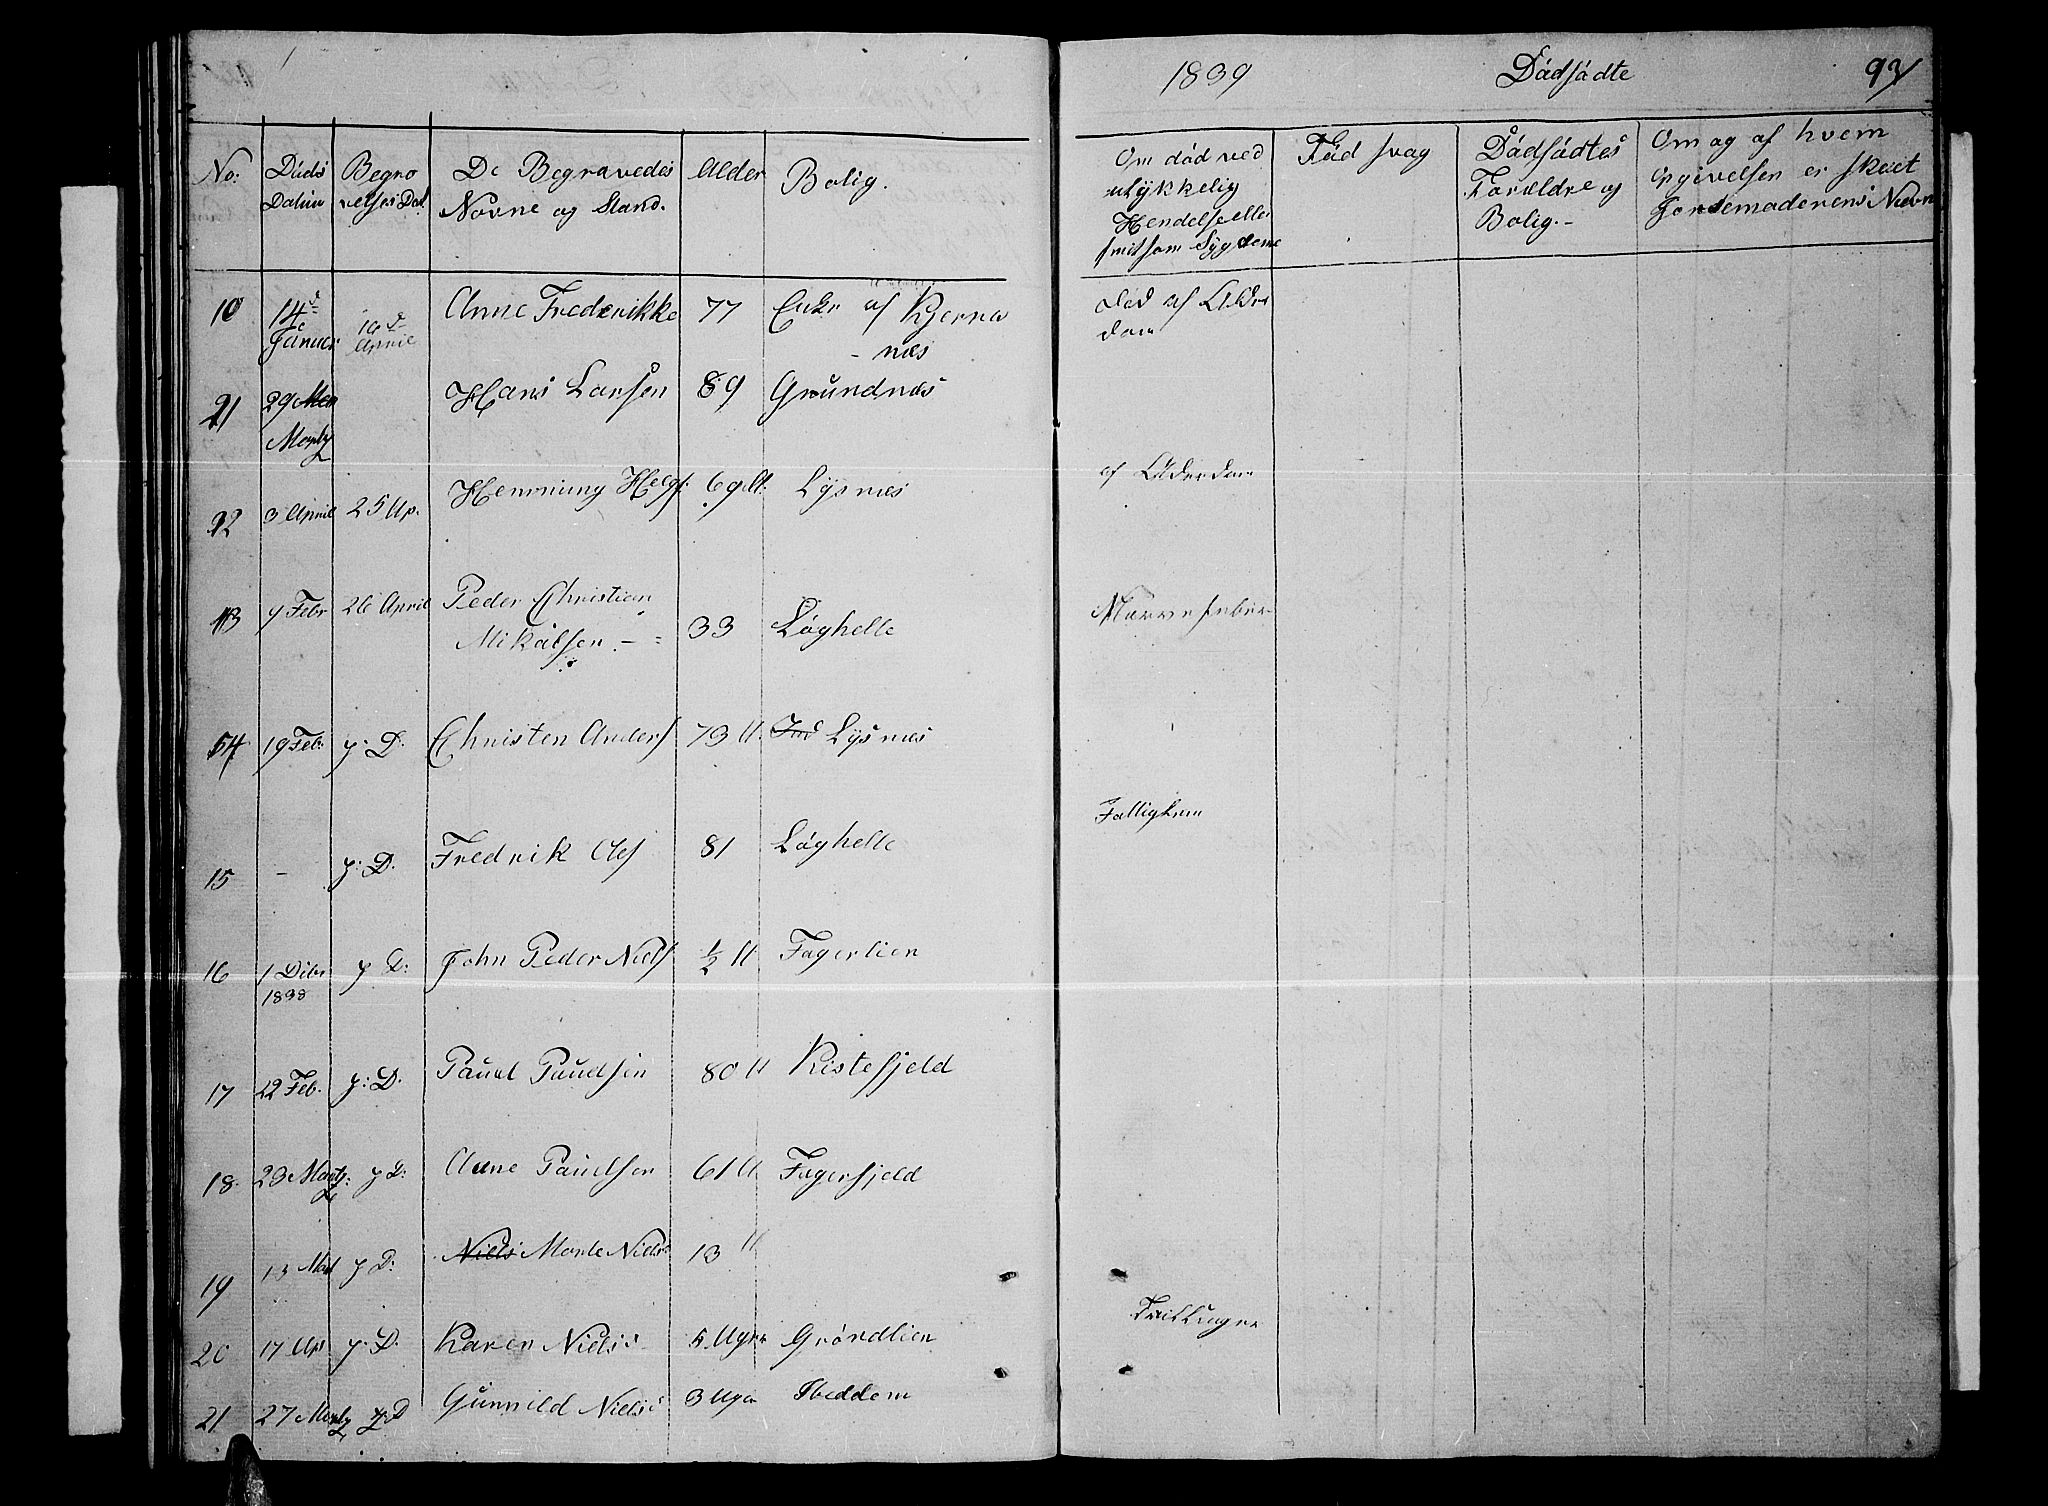 1839 Dödfödte 93
No: Döds Datum Begravelses Dat. De Begravedes Navne og Stand. Alder Bolig. Om död ved ulykkelig Hendelse eller smitsom Sygdome Föd svag Dödfödtes Forældre og Bolig. - Om og af hvem opgivelsen er skeet Jordemoderens Navn
10 14de Januar April Anne Frederikke 77 Enke af Kjerva
- næs död af Alder
dom
21 29 Martz Hans Larsen 89 Grundnæs
22 3 April 25 Ap. Henning Helgs: 69 A. Lysnæs af Alderdom
13 7 Febr 26 April Peder Christian
Mikalsen - 33 Løghelle
54 19 Feb. s: D: Christen Anders 73 A. Lysnæs
15 - s: D. Fredrik Ols 81 Løghelle
16 1 Dcbr s D: John Peder Niels ½ A Fagerlien
1838
17 22 Feb. s: D. Paul Paulsen 80 A Kistefjeld
18 23 Martz: s D: Anne Paulsen 61 A Fagerfjeld
19 13 s D: Niels Marte Niels 13 A
20 17 Ap s: D. Karen Niels: 5 Uger Gröndlien
21 27 Martz s D Gunnild Niels: 3 Uger Ibeddom